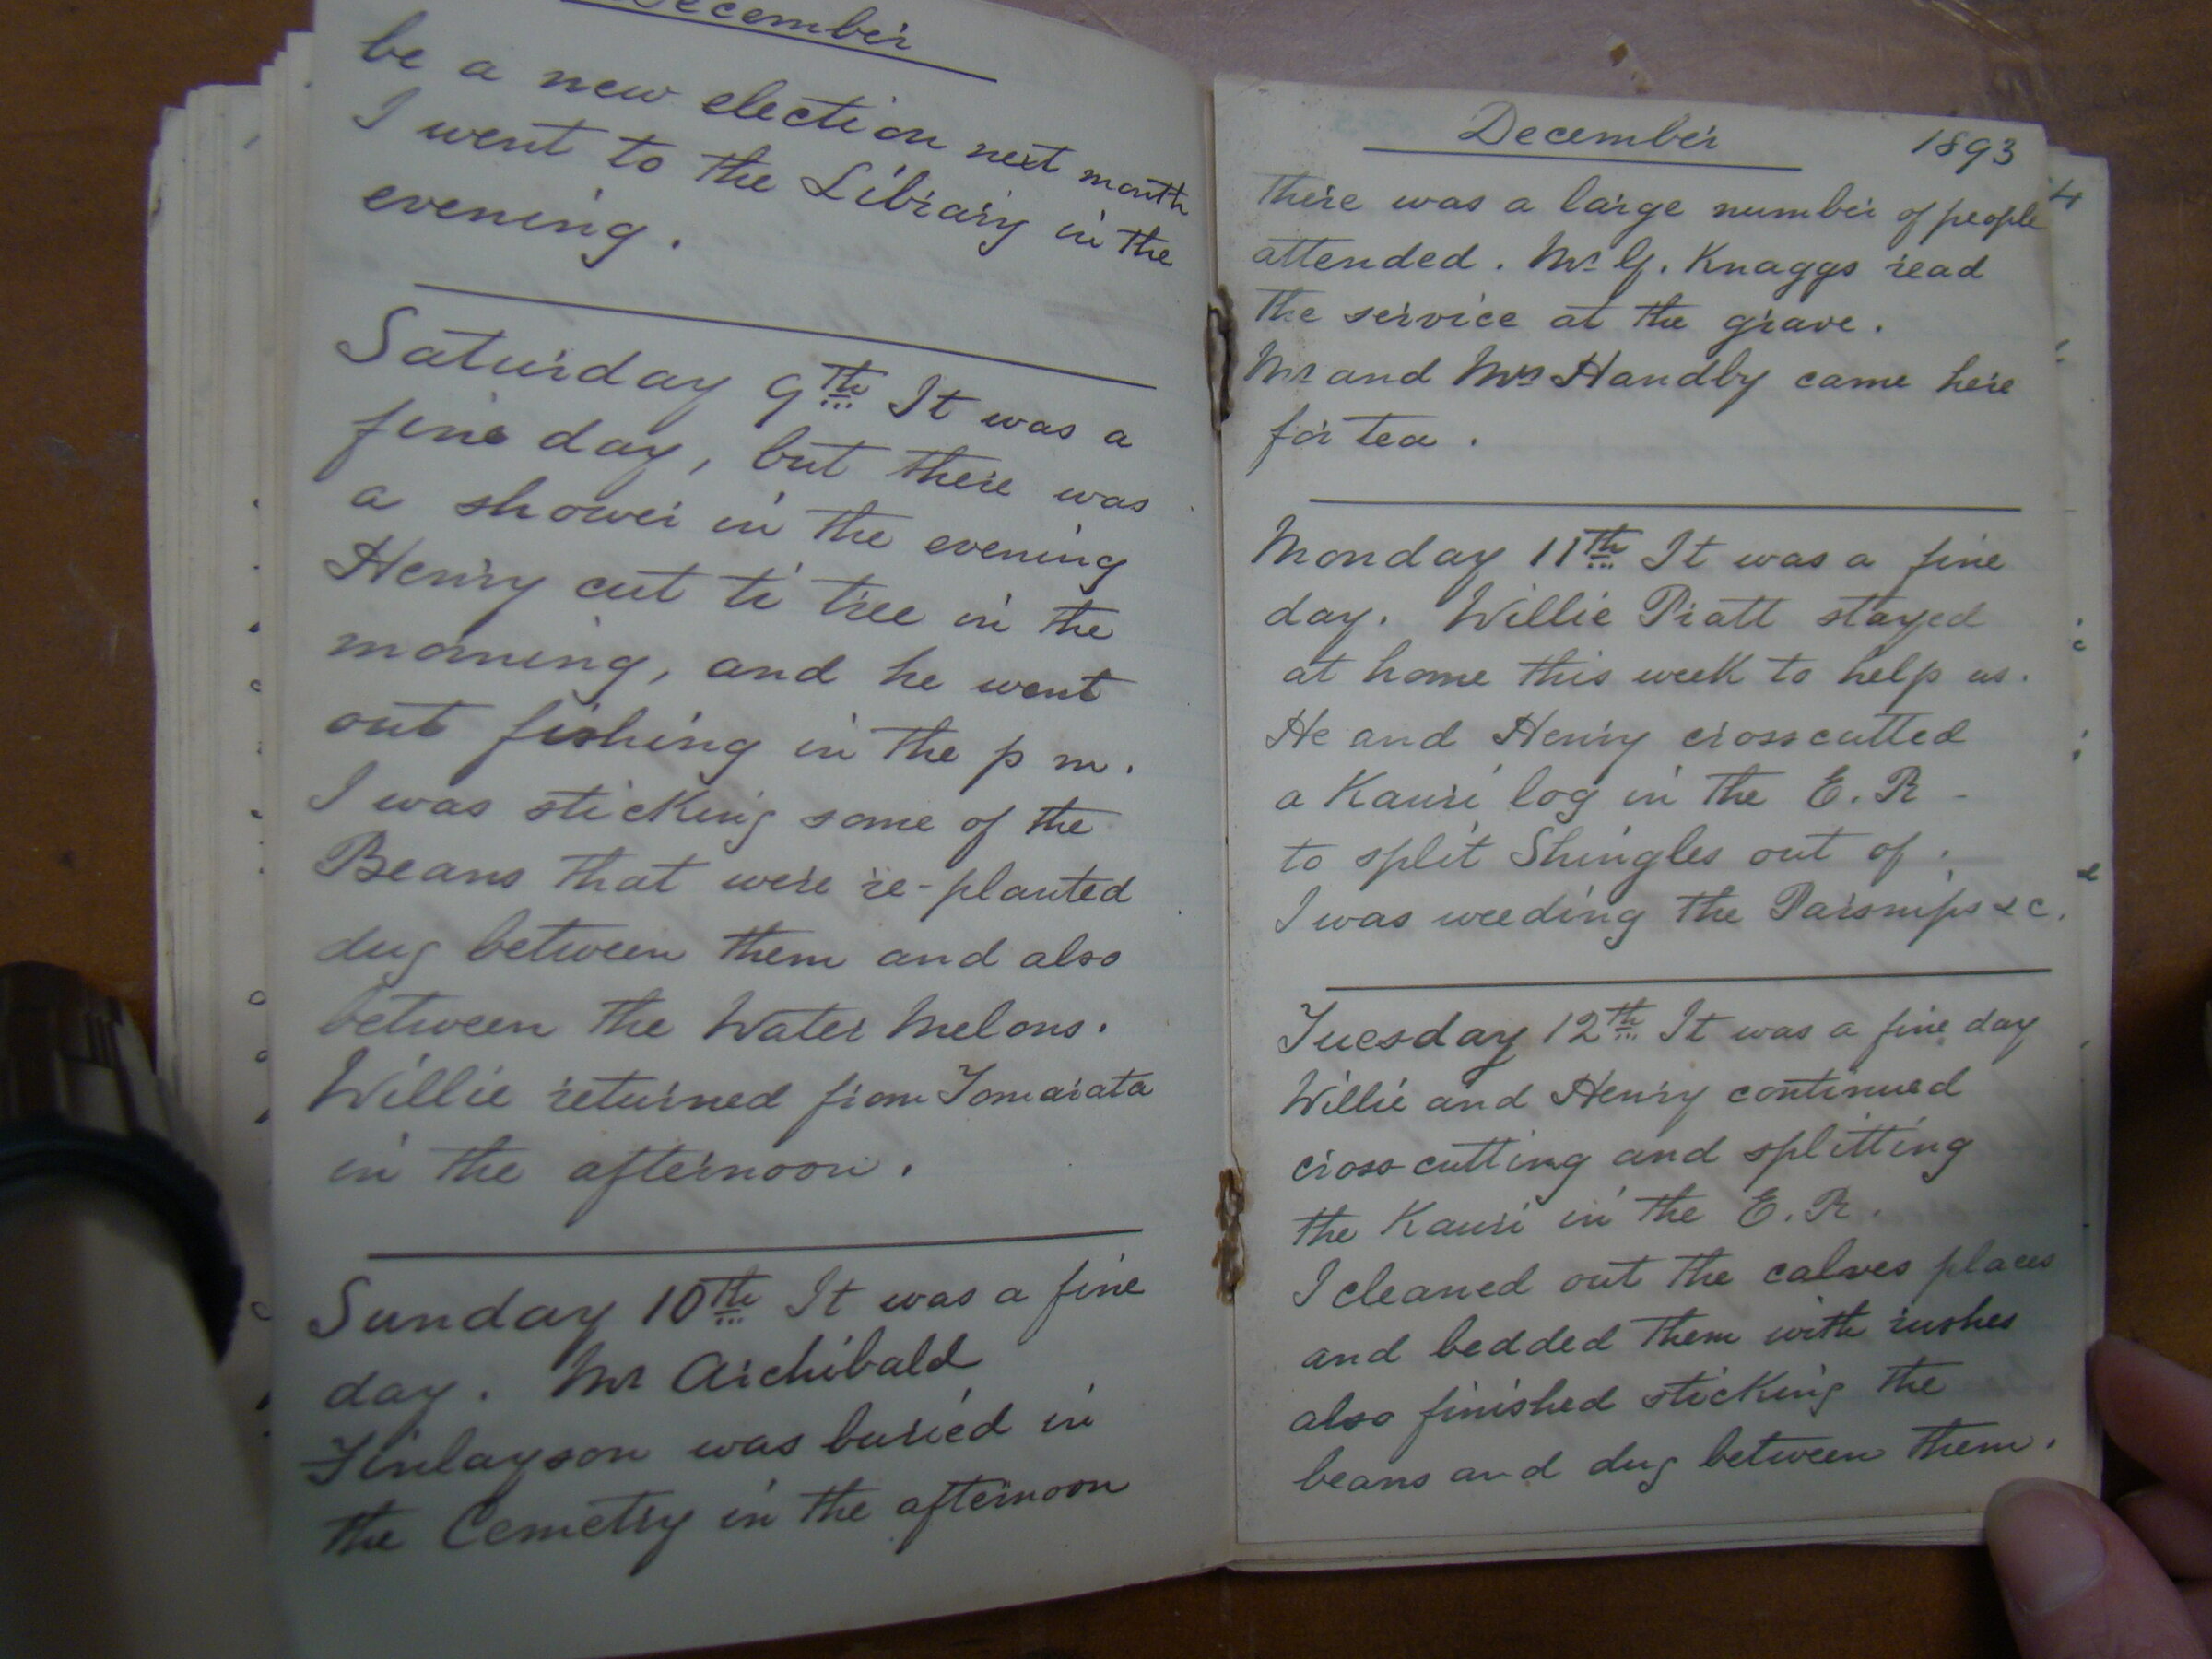 December
be a new election next month
I went to the Library in the
evening.
Saturday 9th It was a
fine day, but there was
a shower in the evening
Henry cut ti tree in the
morning, and he went
out fishing in the p m.
I was sticking some of the
Beans that were re-planted
dug between them and also
between the Water Melons.
Willie returned from Tomarata
in the afternoon.
Sunday 10th It was a fine
day. Mr Archibald
Finlayson was buried in
the Cemetry in the afternoon
December 1893
there was a large number of people
attended. Mr G. Knaggs read
the service at the grave.
Mr and Mrs Handby came here
for tea.
Monday 11th It was a fine
day. Willie Pratt stayed
at home this week to help us.
He and Henry crosscutted
a Kauri log in the E. R -
to split Shingles out of.
I was weeding the Parsnips &c.
Tuesday 12th It was a fine day
Willie and Henry continued
cross cutting and splitting
the Kauri in the E. R.
I cleaned out the calves places
and bedded them with rushes
also finished sticking the
beans and dug between them.